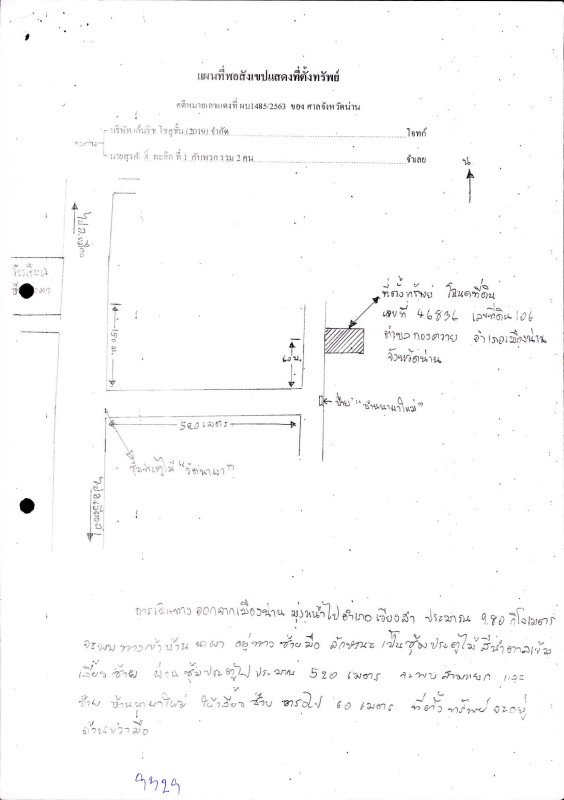 แผนที่พอสังเขปแสดงที่ตั้งทรัพย์
คดีหมายเลขแดงที่ ผบ1485/2563 ของ ศาลจังหวัดน่าน
ระหว่าง
บริษัท เจ็นริช โซลูชั่น (2019) จำกัด โจทก์
ที่ 1 กับพวก รวม 2 คน จำเลย
น
โรงเรียน
ที่ตั้งทรัพย์ โฉนดที่ดิน
เลขที่ 46836 เลขที่ดิน 106
ตำบล กองควาย อำเภอเมืองน่าน
จังหวัดน่าน
150 ม.
60 ม.
ป้าย "บ้านนาผาใหม่"
520 เมตร
ซุ้มประตูไม้ "วัดนาผา"
ไป อ.เวียงสา
การเดินทาง ออกจากเมืองน่าน มุ่งหน้าไปอำเภอเวียงสา ประมาณ 9.80 กิโลเมตร
จะพบ ทางเข้าบ้าน นาผา อยู่ทาง ซ้ายมือ ลักษณะ เป็นซุ้มประตูไม้ สีน้ำตาลเข้ม
เลี้ยวซ้าย ผ่าน ซุ้มประตูไป ประมาณ 520 เมตร จะพบ สามแยก และ
ป้าย บ้านนาผาใหม่ ให้เลี้ยว ซ้าย ตรงไป 60 เมตร ที่ตั้ง ทรัพย์ จะอยู่
ด้านขวามือ